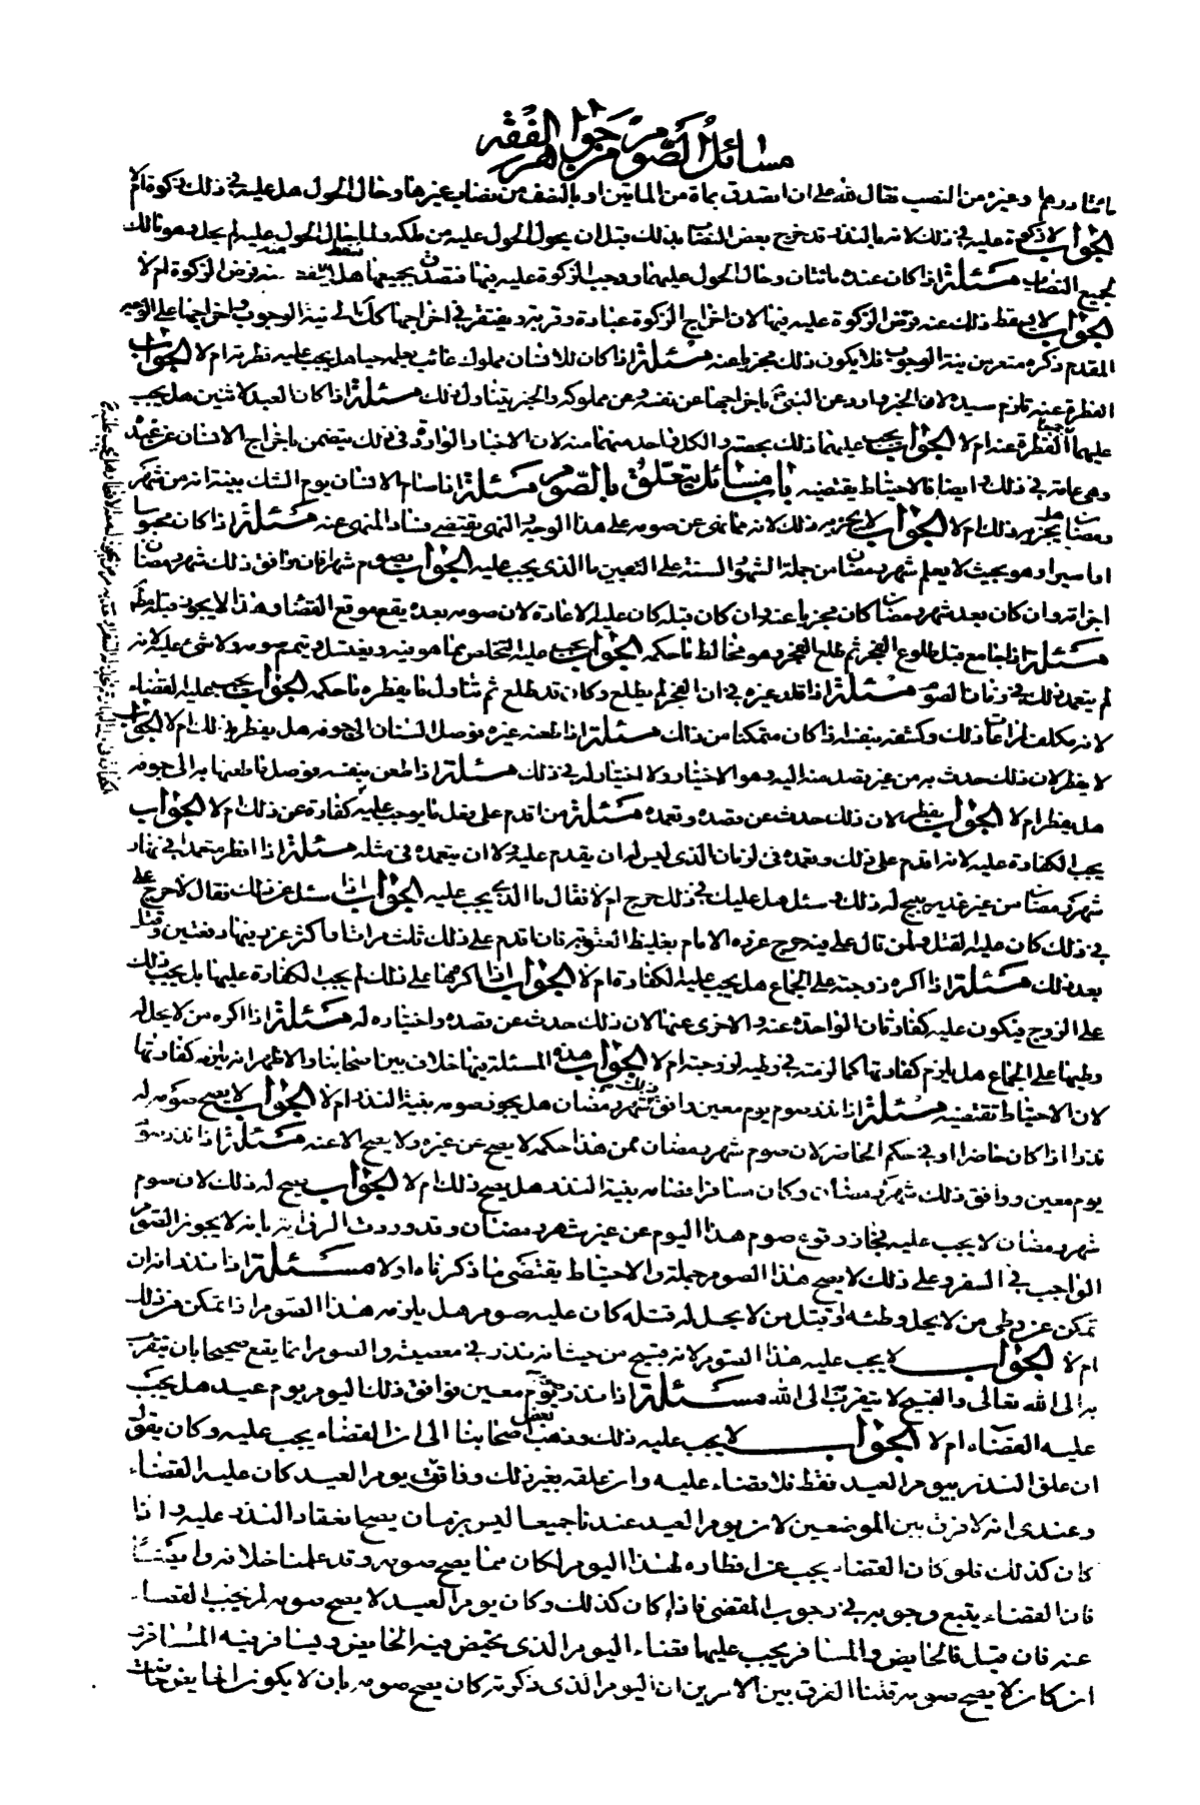 مسائل الصوم من جواهر الفقه
مائتا درهم وغيره من النصب فقال لله على ان اتصدق بماة من الماتين او بالنصف من نصاب غيرها وحال الحول هل عليه في ذلك زكوة ام لا
الجواب لا زكوة عليه في ذلك لانه بالنذر قد خرج بعض النصاب بذلك قبل ان يحول الحول عليه من ملكه ولما حال الحول عليه لم يحل وهو مالك
لجميع النصاب مسئلة اذا كان عنده مائتان وحال الحول عليهما ووجب الزكوة عليه فيها فتصدق بجميعها هل يسقط عنه فرض الزكوة ام لا
الجواب لا يسقط ذلك عنه فرض الزكوة عليه فيها لان اخراج الزكوة عبادة وقربة ويفتقر في اخراجها الى نية الوجوب واخراجها على الوجه
المقدم ذكره متعر من نية الوجوب فلا يكون ذلك مجزيا عنه مسئلة اذا كان للانسان مملوك غائب يعلم حياته هل يجب عليه فطرته ام لا الجواب
الفطرة عنه تلزم سيده لان الخبر وارد عن النبي باخراجها عن نفسه وعن مملوكه والخبر يتناول ذلك مسئلة اذا كان العبد لاثنين هل يجب
عليهما جميعا الفطرة عنه ام لا الجواب يجب عليهما ذلك بحصته والكل واحد منهما منه لان الاخبار الواردة في ذلك يتضمن باخراج الانسان عن عبده
وهي عامة في ذلك وايضا فالاحتياط يقتضيه باب مسائل يتعلق بالصوم مسئلة اذا صام الانسان يوم الشك بنية انه من شهر
رمضان هل يجزيه ذلك ام لا الجواب لا يجزيه ذلك لانه مما نهى عن صومه على هذا الوجه والنهى يقتضى فساد المنهى عنه مسئلة اذا كان محبوسا
او اسيرا وهو بحيث لا يعلم شهر رمضان من جملة الشهور السنة على التعيين ما الذى يجب عليه الجواب يصوم شهرا فان توافق ذلك شهر رمضان
اجزاته وان كان بعد شهر رمضان كان مجزيا عنه وان كان قبله كان عليه الاعادة لان صومه بعده يقع موقع القضاء وهذا لا يجوز قبله
مسئلة اذا جامع قبل طلوع الفجر ثم طلع الفجر وهو مخالط ما حكمه الجواب يجب عليه التخلص مما هو فيه ويغتسل ويتمم صومه ولا شئ عليه لانه
لم يتعمد ذلك في زمان الصوم مسئلة اذا قلد غيره في ان الفجر لم يطلع وكان قد طلع ثم تناول ما يفطره ما حكمه الجواب يجب عليه القضاء
لانه مكلف لمراعات ذلك وكشفه بنفسه اذا كان متمكنا من ذلك مسئلة اذا طعنه غيره فوصل السنان الى جوفه هل يفطر بذلك ام لا الجواب
لا يفطر لان ذلك حدث به من غير قصد منه اليه وهو الاختيار ولا اختيار له في ذلك مسئلة اذا طعن نفسه فوصل ما طعنها به الى جوفه
هل يفطر ام لا الجواب يفطر لان ذلك حدث عن قصده وتعمده مسئلة من اقدم على فعل ما يوجب عليه كفارة عن ذلك ام لا الجواب
يجب الكفارة عليه لانه اقدم على ذلك وتعمده في الزمان الذى ليس له ان يقدم عليه ولا ان يتعمده في مثله مسئلة اذا افطر متعمدا في نهار
شهر رمضان من غير عذر يبيح له ذلك وسئل هل عليك في ذلك حرج ام لا فقال ما الذى يجب عليه الجواب اذا سئل عن ذلك فقال لا حرج على
في ذلك كان عليه القتل ومن قال على فيه حرج عزره الامام بغليظ العقوبة فان اقدم على ذلك ثلث مرات او اكثر عزر فيها دفعتين وقتل
بعد ذلك مسئلة اذا اكره زوجته على الجماع هل يجب عليه الكفارة ام لا الجواب اذا اكرهها على ذلك لم يجب الكفارة عليها بل يجب ذلك
على الزوج فيكون عليه كفارتان الواحدة عنه والاخرى عنها لان ذلك حدث عن قصده واختياره له مسئلة اذا اكره من لا يحل له
وطيها على الجماع هل يلزم كفارتها كما لزمته في وطيه لزوجته ام لا الجواب هذه المسئلة فيها خلاف بين اصحابنا والاظهر انه يلزمه كفارتها
لان الاحتياط تقتضيه مسئلة اذا نذر صوم يوم معين ووافق ذلك شهر رمضان هل يجوز صومه بنية النذر ام لا الجواب لا يصح صومه له
نذرا اذا كان حاضرا او في حكم الحاضر لان صوم شهر رمضان ممن هذا حكمه لا يصح عن غيره ولا يصح الا عنه مسئلة اذا نذر صوم
يوم معين ووافق ذلك شهر رمضان وكان مسافرا فصامه بنية النذر هل يصح ذلك ام لا الجواب يصح له ذلك لان صوم
شهر رمضان لا يجب عليه فجاز وقوع صوم هذا اليوم عن غير شهر رمضان وقد وردت الرواية بانه لا يجوز الصوم
الواجب في السفر وعلى ذلك لا يصح هذا الصوم جملة والاحتياط يقتضى ما ذكرناه اولا مسئلة اذا نذر انه ان
تمكن من وطى من لا يحل وطئه او قبل من لا يحل له قتله كان عليه صوم هل يلزمه هذا الصوم اذا تمكن من ذلك
ام لا الجواب لا يجب عليه هذا الصوم لانه قبيح من حيث انه نذر في معصية والصوم انما يقع صحيحا بان يتقرب
به الى الله تعالى والقبيح لا يتقرب به الى الله مسئلة اذا نذر صوم يوم معين فوافق ذلك اليوم يوم عيد هل يجب
عليه القضاء ام لا الجواب لا يجب عليه ذلك وذهب بعض اصحابنا الى ان القضاء يجب عليه وكان يقول
ان علق النذر بيوم العيد فقط فلا قضاء عليه وان علقه بغير ذلك ووافق يوم العيد كان عليه القضاء
وعندى انه لا فرق بين الموضعين لان يوم العيد عندنا جميعا ليس بزمان يصح انعقاد النذر عليه واذا
كان كذلك فلو كان القضاء يجب عن افطاره لهذا اليوم لكان مما يصح صومه وقد علمنا خلافه وايضا
فان القضاء يتبع وجوبه في وجوب المقضى فاذا كان كذلك وكان يوم العيد لا يصح صومه لم يجب القضاء
عنه فان قيل فالحايض والمسافر يجب عليها قضاء اليوم الذى تحيض فيه الحايض ويسافر فيه المسافر
ان كان لا يصح صومه قلنا الفرق بين الامرين ان اليوم الذى ذكرته كان يصح صومه بان لا يكون الحايض حائضا